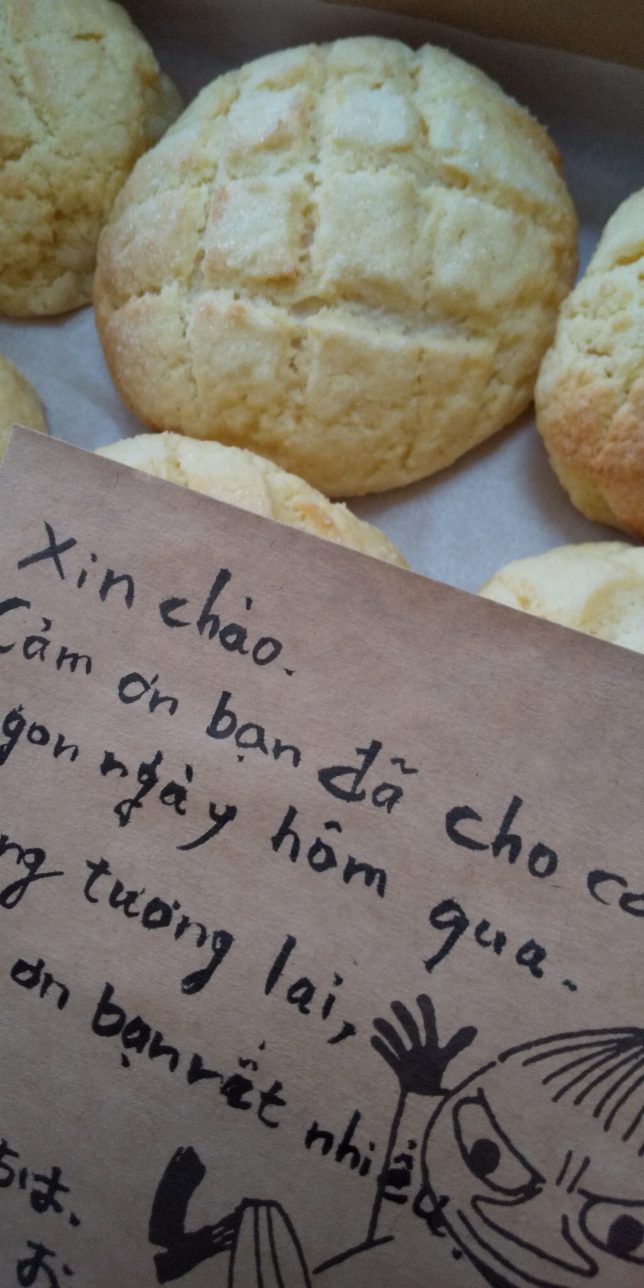 Xin chào.
Cảm ơn bạn đã cho
ngày hôm qua.
tương lai,
ơn bạn rất nhiều.